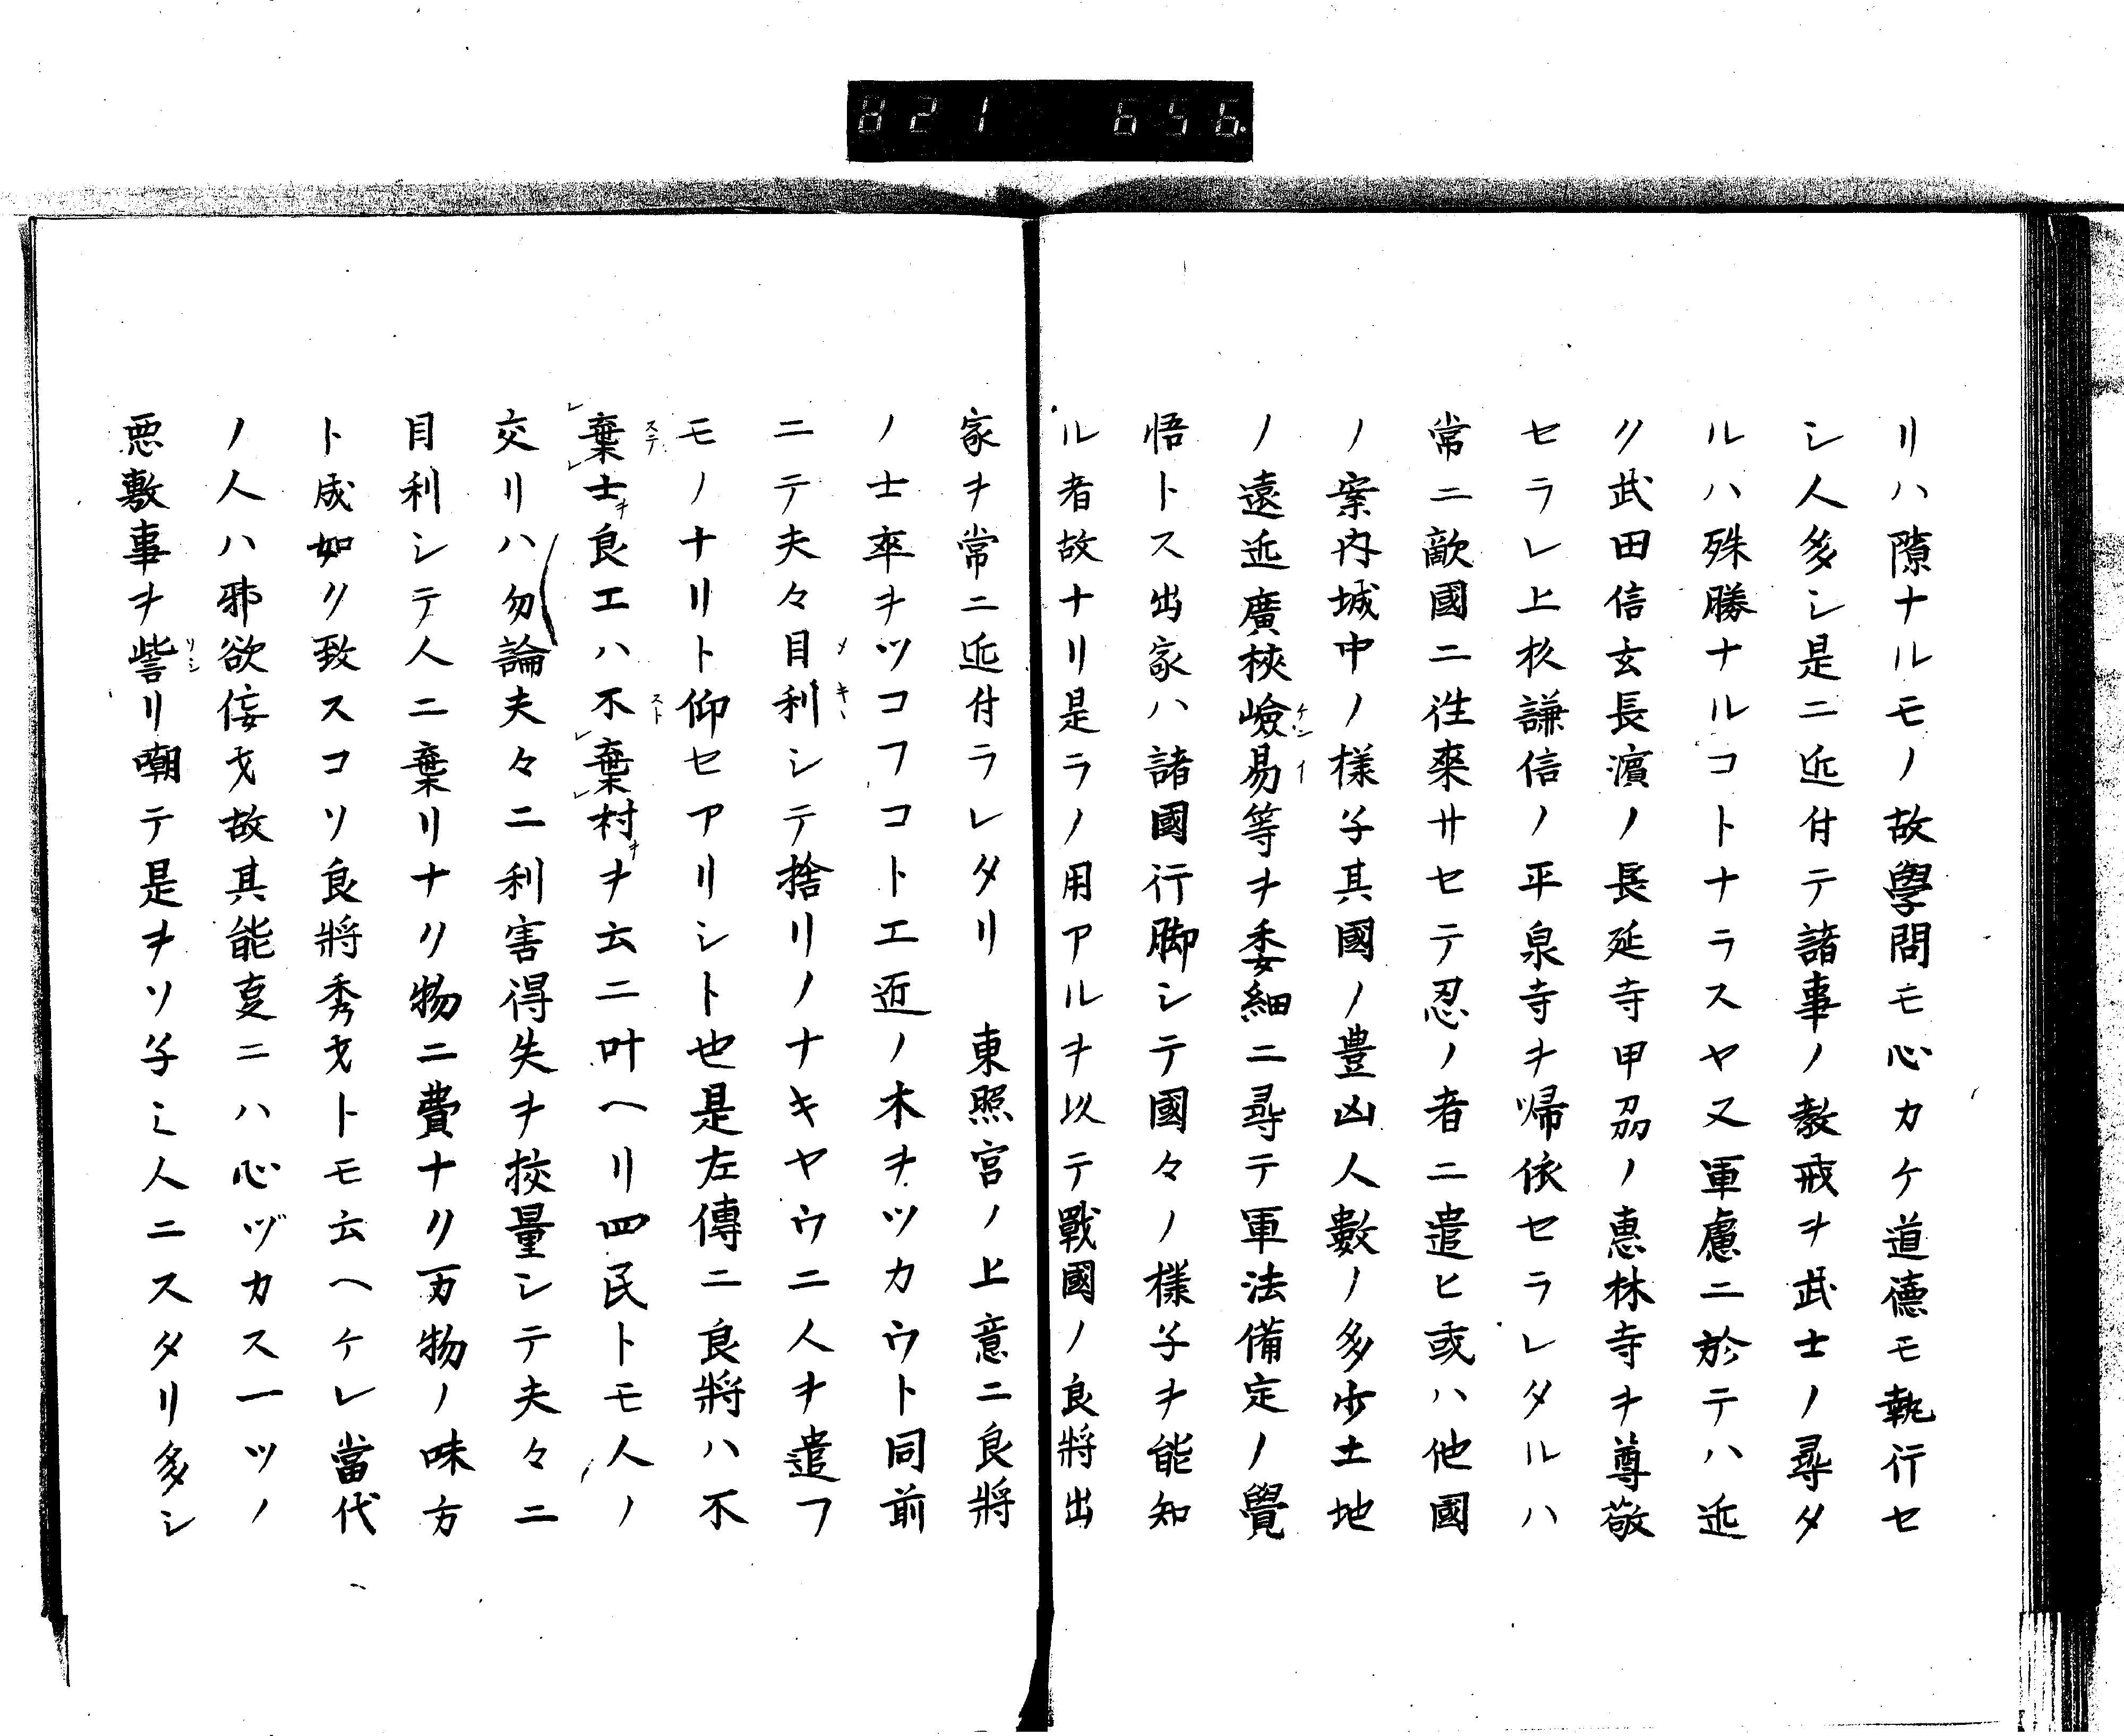 821 656.
リハ隙ナルモノ故學問モ心カケ道德モ執行セ
シ人多シ是ニ近付テ諸事ノ敎戒ヲ武士ノ尋タ
ルハ殊勝ナルコトナラスヤ又軍慮ニ於テハ近
ク武田信玄長濵ノ長延寺甲刕ノ惠林寺ヲ尊敬
セラレ上杦謙信ノ平泉寺ヲ帰依セラレタルハ
常ニ敵國ニ徃來サセテ忍ノ者ニ遣ヒ或ハ他國
ノ案内城中ノ樣子其國ノ豊凶人數ノ多少土地
ノ遠近廣狹嶮易等ヲ委細ニ尋テ軍法備定ノ覺
悟トス出家ハ諸國行脚シテ國々ノ樣子ヲ能知
ル者故ナリ是ラノ用アルヲ以テ戰國ノ良將出
家ヲ常ニ近付ラレタリ 東照宮ノ上意ニ良將
ノ士卒ヲツコフコト工近ノ木ヲツカウト同前
ニテ夫々目利シテ捨リノナキヤウニ人ヲ遣フ
モノナリト仰セアリシト也是左傳ニ良將ハ不
レ棄レ士ヲ良工ハ不レ棄レ村ヲヲ云ニ叶ヘリ四民トモ人ノ
交リハ勿論夫々ニ利害得失ヲ挍量シテ夫々ニ
目利シテ人ニ棄リナク物ニ費ナク万物ノ味方
ト成如ク致スコソ良將秀才トモ云ヘケレ當代
ノ人ハ邪欲侫才故其能㕝ニハ心ヅカス一ツノ
悪敷事ヲ訾リ嘲テ是ヲソ子ミ人ニスタリ多シ